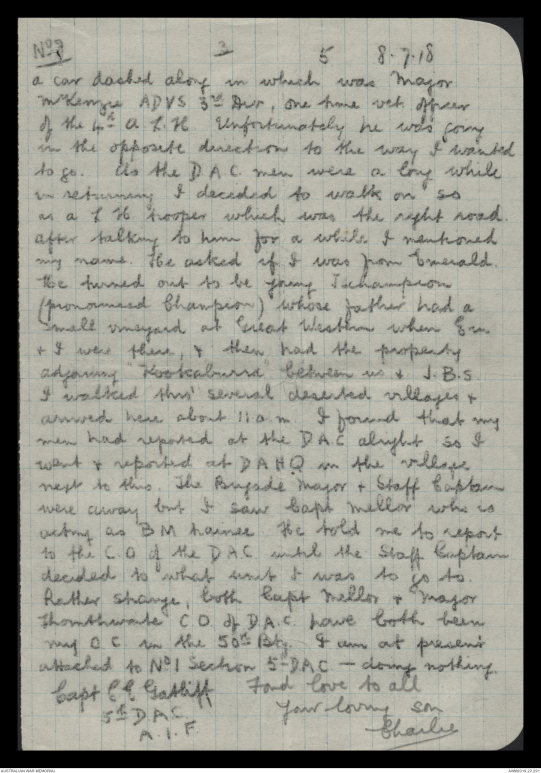 No 9 3 5 8.7.18
a car dashed along in which was Major
McKenzie ADVS 3rd Div, one time vet. officer
of the 4th A L.H. Unfortunately he was going
in the opposite direction to the way I wanted
to go. As the D.A.C. men were a long while
in returning I decided to walk on so
as a L H trooper which was the right road.
After talking to him for a while I mentioned
my name. He asked if I was from Emerald.
He turned out to be young Tschampion
(pronounced Champion) whose father had a
small vineyard at Great Western when Em
+ I were there, + then had the property
adjoining "Kookaburra" between us + J.B.S
I walked thro' several deserted villages +
arrived here about 11 a.m. I found that my
men had reported at the DAC alright so I
went + reported at DAHQ in the village
next to this. The Brigade Major + Staff Captain
were away but I saw Capt Mellor who is
acting as BM trainee. He told me to report
to the C.O of the DAC until the Staff Captain
decided to what unit I was to go to.
Rather strange, both Capt Mellor + Major
Thornthwaite C O of D.A.C. have both been
my O C in the 50th Bty. I am at present
attached to No 1 Section 5th DAC — doing nothing.
Fond love to all
Your loving son
Charlie
Capt C E Gatliff
5th D A C
A. I. F.
AUSTRALIAN WAR MEMORIAL